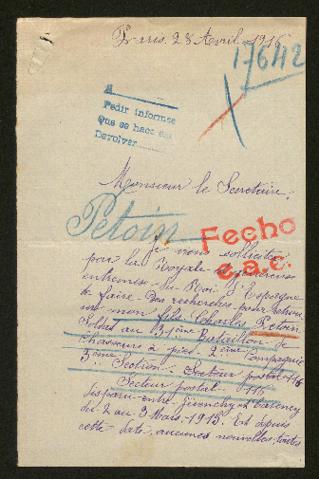 Paris 28 Avril 1916
17642
A
Pedir informes
Que se hace
Devolver
Monsieur le Secretaire,
Petoin
Fecho
e.a.c.
Je vous sollicite
par la Royale et
entremise du Roi d'Espagne
de faire des recherches pour
mon fils Charles Petoin
Soldat au 31ème Bataillon de
Chasseurs à pied 2ème Compagnie
3ème Section Secteur postal 116
Secteur postal 116
disparu entre Givenchy et Carency
du 2 au 3 Mars 1915. Et depuis
cette date, aucunes nouvelles, toutes